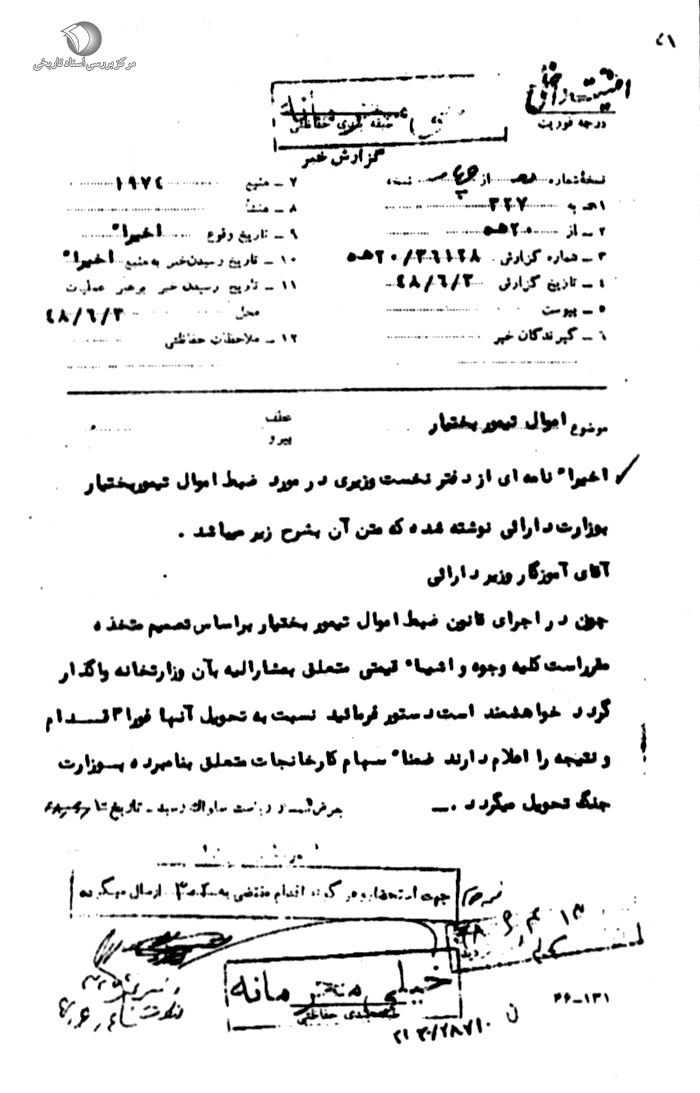 مرکز بررسی اسناد تاریخی
درجه فوریت
خیلی محرمانه
طبقه بندی حفاظتی
گزارش خبر
نسخهٔ شماره از نسخه
۱ـ به ۳۲۷
۲ـ از ۲۰ ه‍
۳ ـ شماره گزارش ۲۰/۳۶۱۲۸ ه‍
۴ ـ تاریخ گزارش ۴۸/۶/۳
۵ ـ پیوست
۶ ـ گیرندگان خبر
۷ ـ منبع ۱۹۷۴
۸ ـ منشأ
۹ ـ تاریخ وقوع اخیراً
۱۰ ـ تاریخ رسیدن خبر به منبع اخیراً
۱۱ ـ تاریخ رسیدن خبر برهبر عملیات
محل ۴۸/۶/۳
۱۲ ـ ملاحظات حفاظتی
موضوع اموال تیمور بختیار
عطف
پیرو
اخیراً نامه ای از دفتر نخست وزیری در مورد ضبط اموال تیموربختیار
بوزارت دارائی نوشته شده که متن آن بشرح زیر میباشد .
آقای آموزگار وزیر دارائی
چون در اجرای قانون ضبط اموال تیمور بختیار براساس تصمیم متخذه
مقرراست کلیه وجوه و اشیاء قیمتی متعلق بمشارالیه بآن وزارتخانه واگذار
گردد خواهشمند است دستور فرمائید نسبت به تحویل آنها فوراً اقدام
و نتیجه را اعلام دارند ضمناً سهام کارخانجات متعلق بنامبرده بوزارت
جنگ تحویل میگردد .ـ
ریاست ساواک رسید ـ تاریخ
جهت استحضار و هر گونه اقدام مقتضی به ارسال میگردد
خیلی محرمانه
طبقه بندی حفاظتی
۱۳۱-۴۶